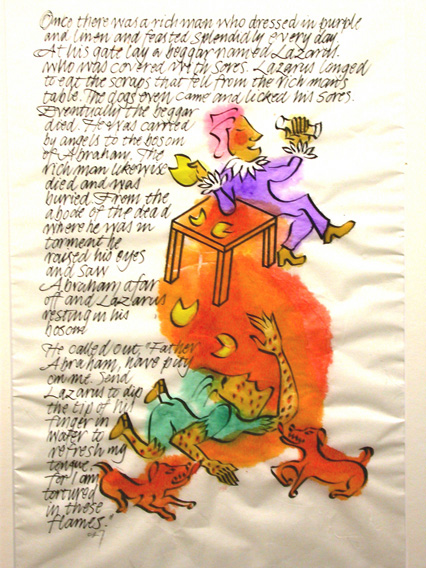 Once there was a rich man who dressed in purple
and linen and feasted splendidly every day.
At his gate lay a beggar named Lazarus.
who was covered with sores. Lazarus longed
to eat the scraps that fell from the rich man's
table. The dogs even came and licked his sores.
Eventually the beggar
died. He was carried
by angels to the bosom
of Abraham. The
rich man likewise
died and was
buried. From the
abode of the dead
where he was in
torment he
raised his eyes
and saw
Abraham afar
off and Lazarus
resting in his
bosom
He called out, "Father
Abraham, have pity
on me. Send
Lazarus to dip
the tip of his
finger in
water to
refresh my
tongue
for I am
tortured
in these
flames."